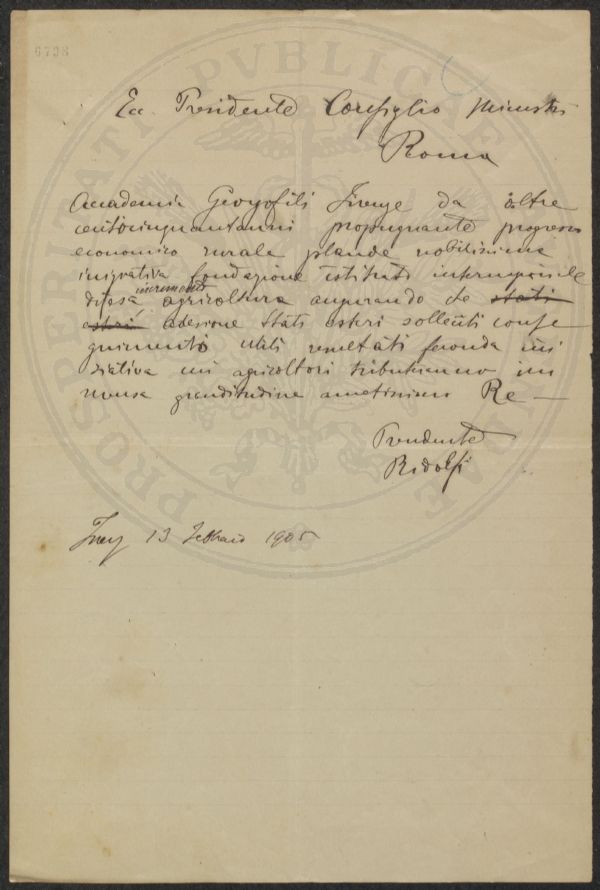 6798
PROSPERITATI PVBLICAE
Ecc Presidente Consiglio Ministri
Roma
Accademia Georgofili Firenze da oltre
centocinquantanni propugnante progresso
economico rurale plaude nobilissima
iniziativa fondazione istituto internazionale
difesa incremento agricoltura augurando che stati
esteri adesione Stati esteri solleciti conse
guimento utili resultati feconda ini
ziativa cui agricoltori tributeranno im
mensa gratitudine amatissimo Re —
Presidente
Ridolfi
13 Febbraio 1905